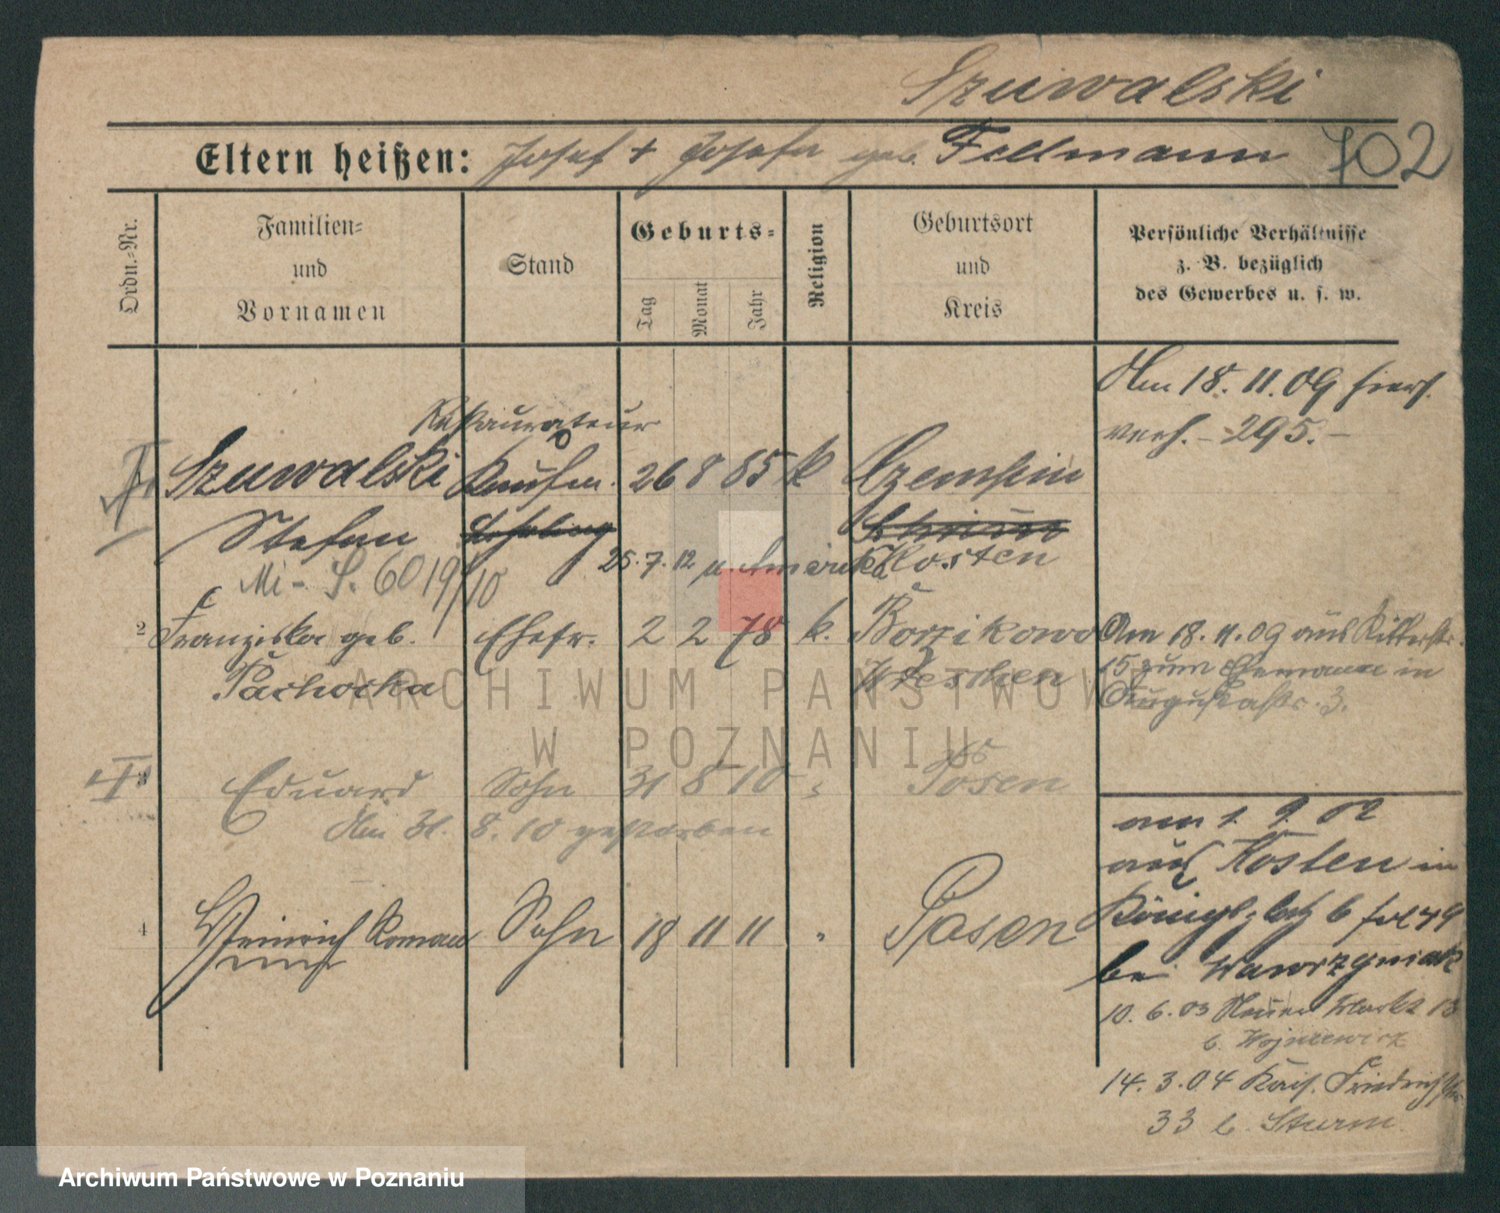 Szuwalski
Eltern heißen: Josef + Josefa geb. Fellmann 702
Ordn.-Nr.
Familien-
und
Vornamen
Stand
Geburts-
Tag
Monat
Jahr
Religion
Geburtsort
und
Kreis
Persönliche Verhältnisse
z. B. bezüglich
des Gewerbes u. s. w.
Am 18. 11. 09 hier
verh. - 295. -
Restaurateur
Szuwalski Kaufm. 26 8 85 k
Stefan
Kosten
25. 7. 12 n Amerika
Mi - S. 6019/10
2 Franziska geb. Ehefr. 2 2 78 k. Borzikowo
Pachocka Wreschen
Am 18. 11. 09 aus Ritterstr.
15 zum Ehemann in
Augustastr. 3.
3 Eduard Sohn 31 8 10 " Posen
Am 31. 8. 10 gestorben
4 Heinrich Roman Sohn 18 11 11 " Posen
am 1. 9. 02
aus Kosten in
Königsplatz 6
bei Wawrzyniak
10. 6. 03 Neuer Markt 13
b.
14. 3. 04 Kais. Friedrichstr
33 b. Sturm
ARCHIWUM PAŃSTWOWE
W POZNANIU
Archiwum Państwowe w Poznaniu